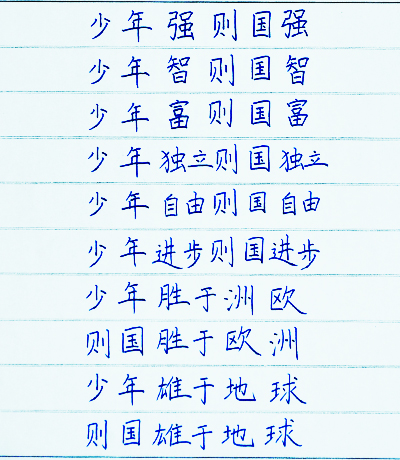 少年强则国强
少年智则国智
少年富则国富
少年独立则国独立
少年自由则国自由
少年进步则国进步
少年胜于洲欧
则国胜于欧洲
少年雄于地球
则国雄于地球